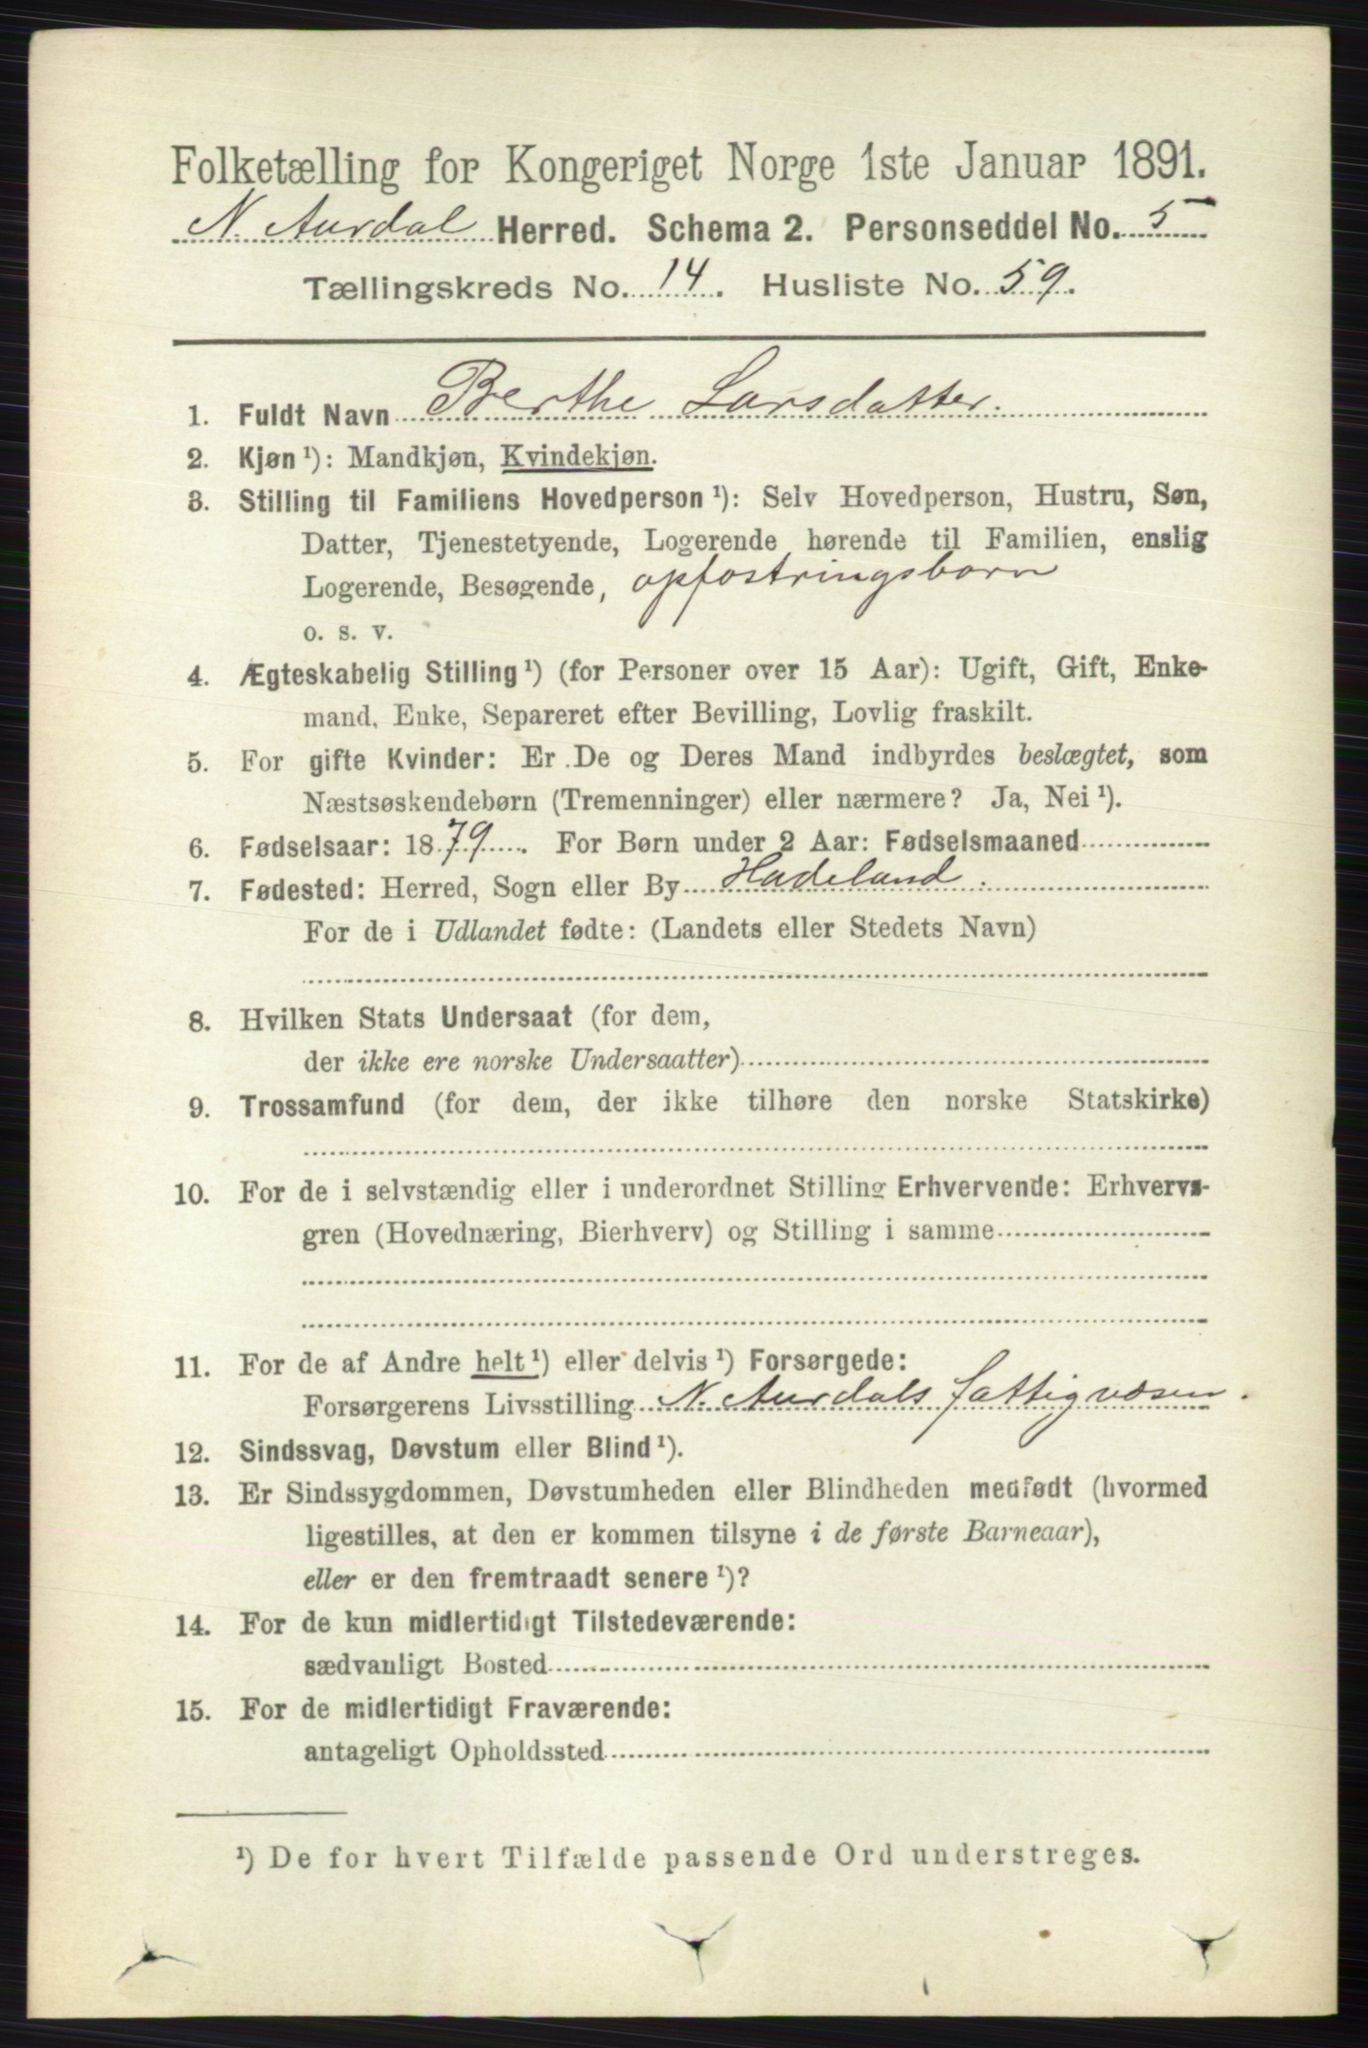 Folketælling for Kongeriget Norge 1ste Januar 1891.
N. Aurdal Herred. Schema 2. Personseddel No. 5
Tællingskreds No. 14. Husliste No. 59.
1. Fuldt Navn Berthe Larsdatter.
2. Kjøn ¹): Mandkjøn, Kvindekjøn.
3. Stilling til Familiens Hovedperson ¹): Selv Hovedperson, Hustru, Søn,
Datter, Tjenestetyende, Logerende hørende til Familien, enslig
Logerende, Besøgende, opfostringsbarn
o. s. v.
4. Ægteskabelig Stilling ¹) (for Personer over 15 Aar): Ugift, Gift, Enke-
mand, Enke, Separeret efter Bevilling, Lovlig fraskilt.
5. For gifte Kvinder: Er De og Deres Mand indbyrdes beslægtet, som
Næstsøskendebørn (Tremenninger) eller nærmere? Ja, Nei ¹).
6. Fødselsaar: 1879. For Børn under 2 Aar: Fødselsmaaned
7. Fødested: Herred, Sogn eller By Hadeland.
For de i Udlandet fødte: (Landets eller Stedets Navn)
8. Hvilken Stats Undersaat (for dem,
der ikke ere norske Undersaatter)
9. Trossamfund (for dem, der ikke tilhøre den norske Statskirke)
10. For de i selvstændig eller i underordnet Stilling Erhvervende: Erhvervs-
gren (Hovednæring, Bierhverv) og Stilling i samme
11. For de af Andre helt ¹) eller delvis ¹) Forsørgede:
Forsørgerens Livsstilling N. Aurdals fattigvæsen.
12. Sindssvag, Døvstum eller Blind ¹).
13. Er Sindssygdommen, Døvstumheden eller Blindheden medfødt (hvormed
ligestilles, at den er kommen tilsyne i de første Barneaar),
eller er den fremtraadt senere ¹)?
14. For de kun midlertidigt Tilstedeværende:
sædvanligt Bosted
15. For de midlertidigt Fraværende:
antageligt Opholdssted
¹) De for hvert Tilfælde passende Ord understreges.